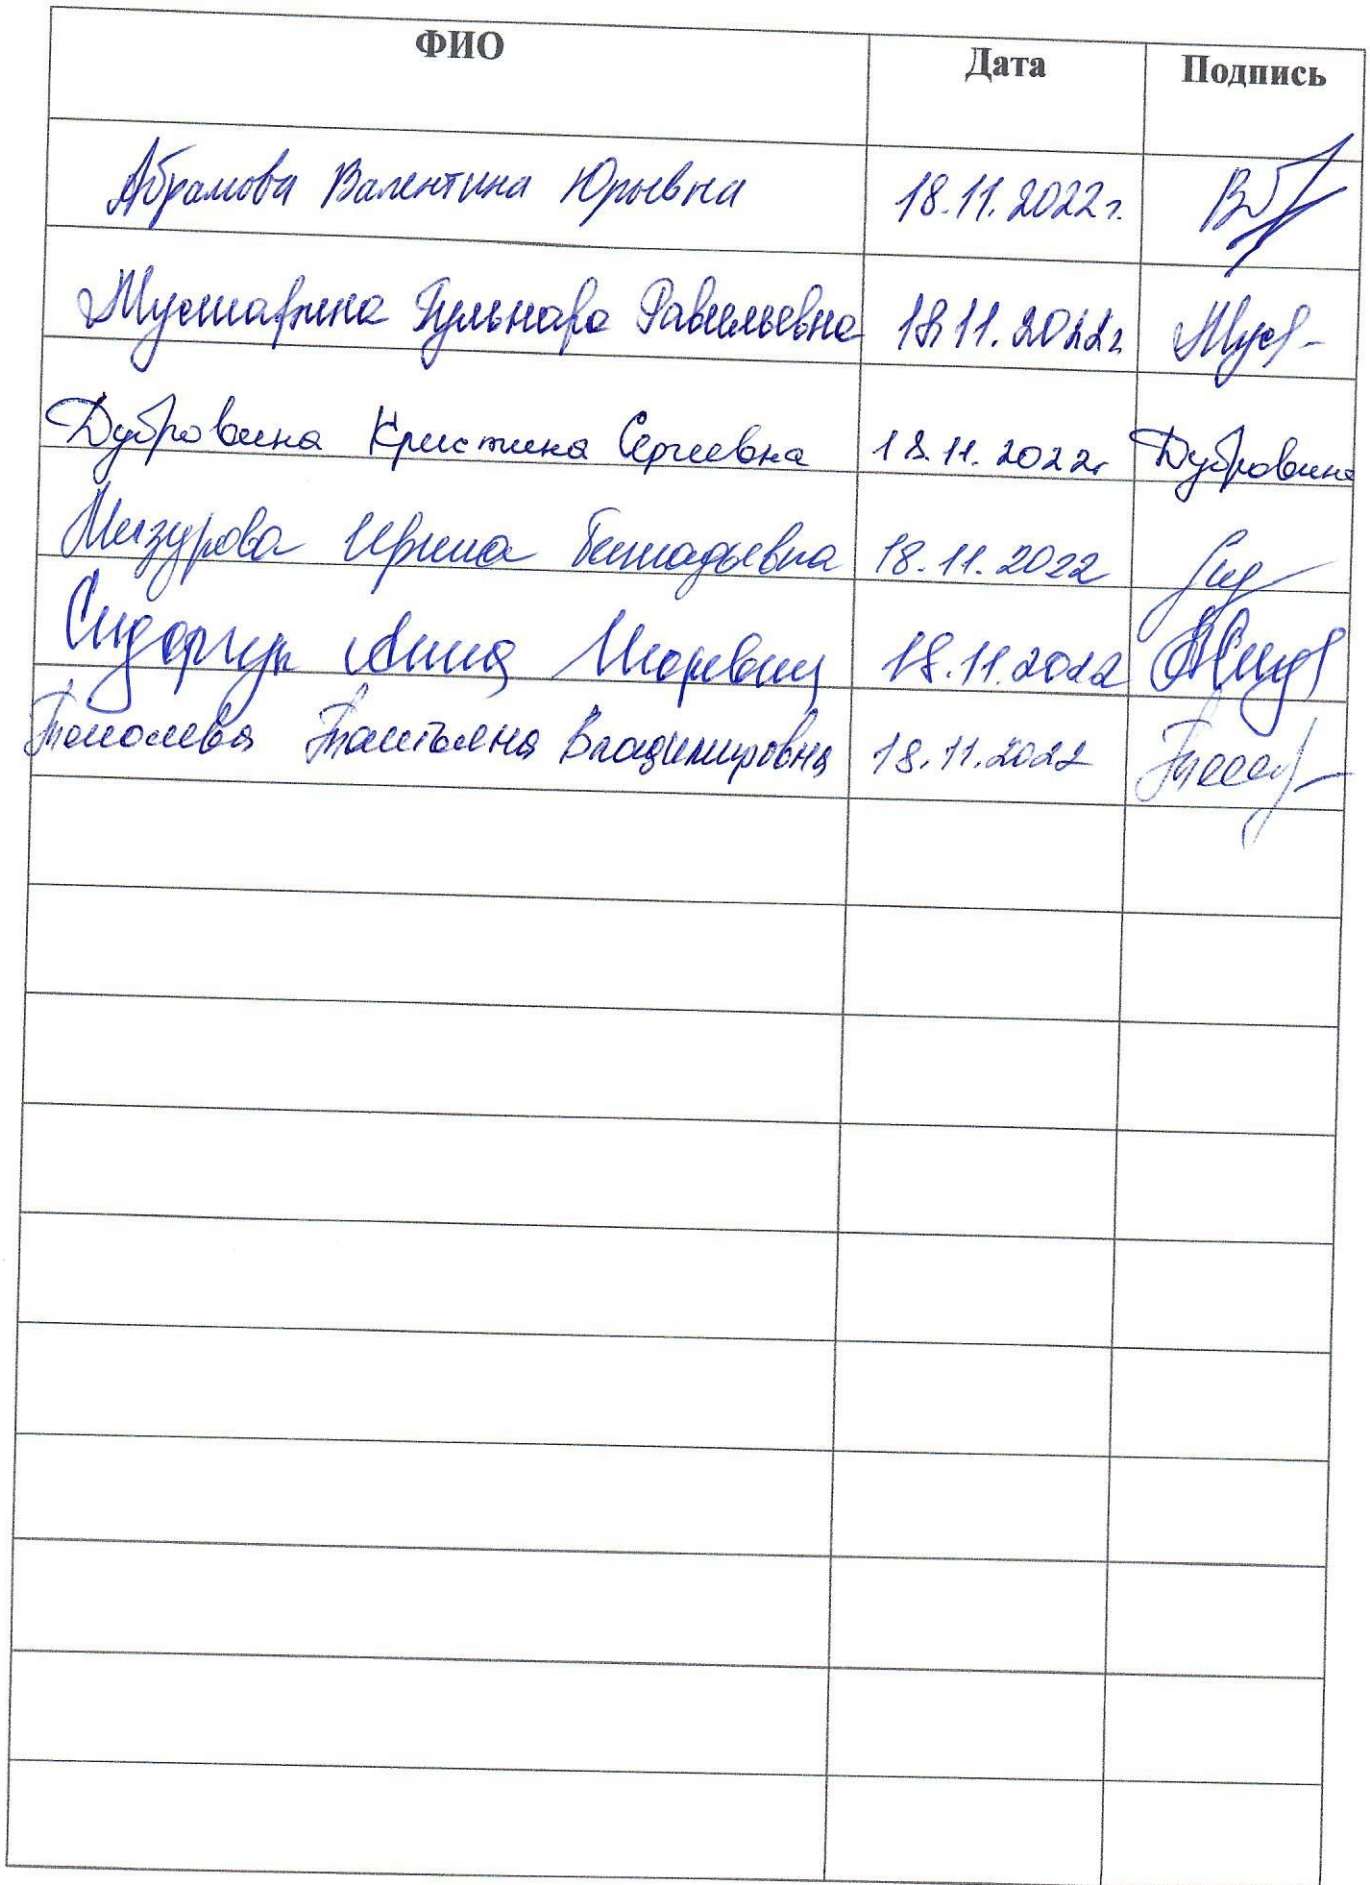 ФИО Дата Подпись
Абрамова Валентина Юрьевна 18.11.2022г.
Гульнара Равильевна 18.11.2022г
Дубровина Кристина Сергеевна 18.11.2022г Дубровина
Мизурова Ирина Геннадьевна 18.11.2022
Сидорчук Анна Игоревна 18.11.2022
Татьяна Владимировна 18.11.2022